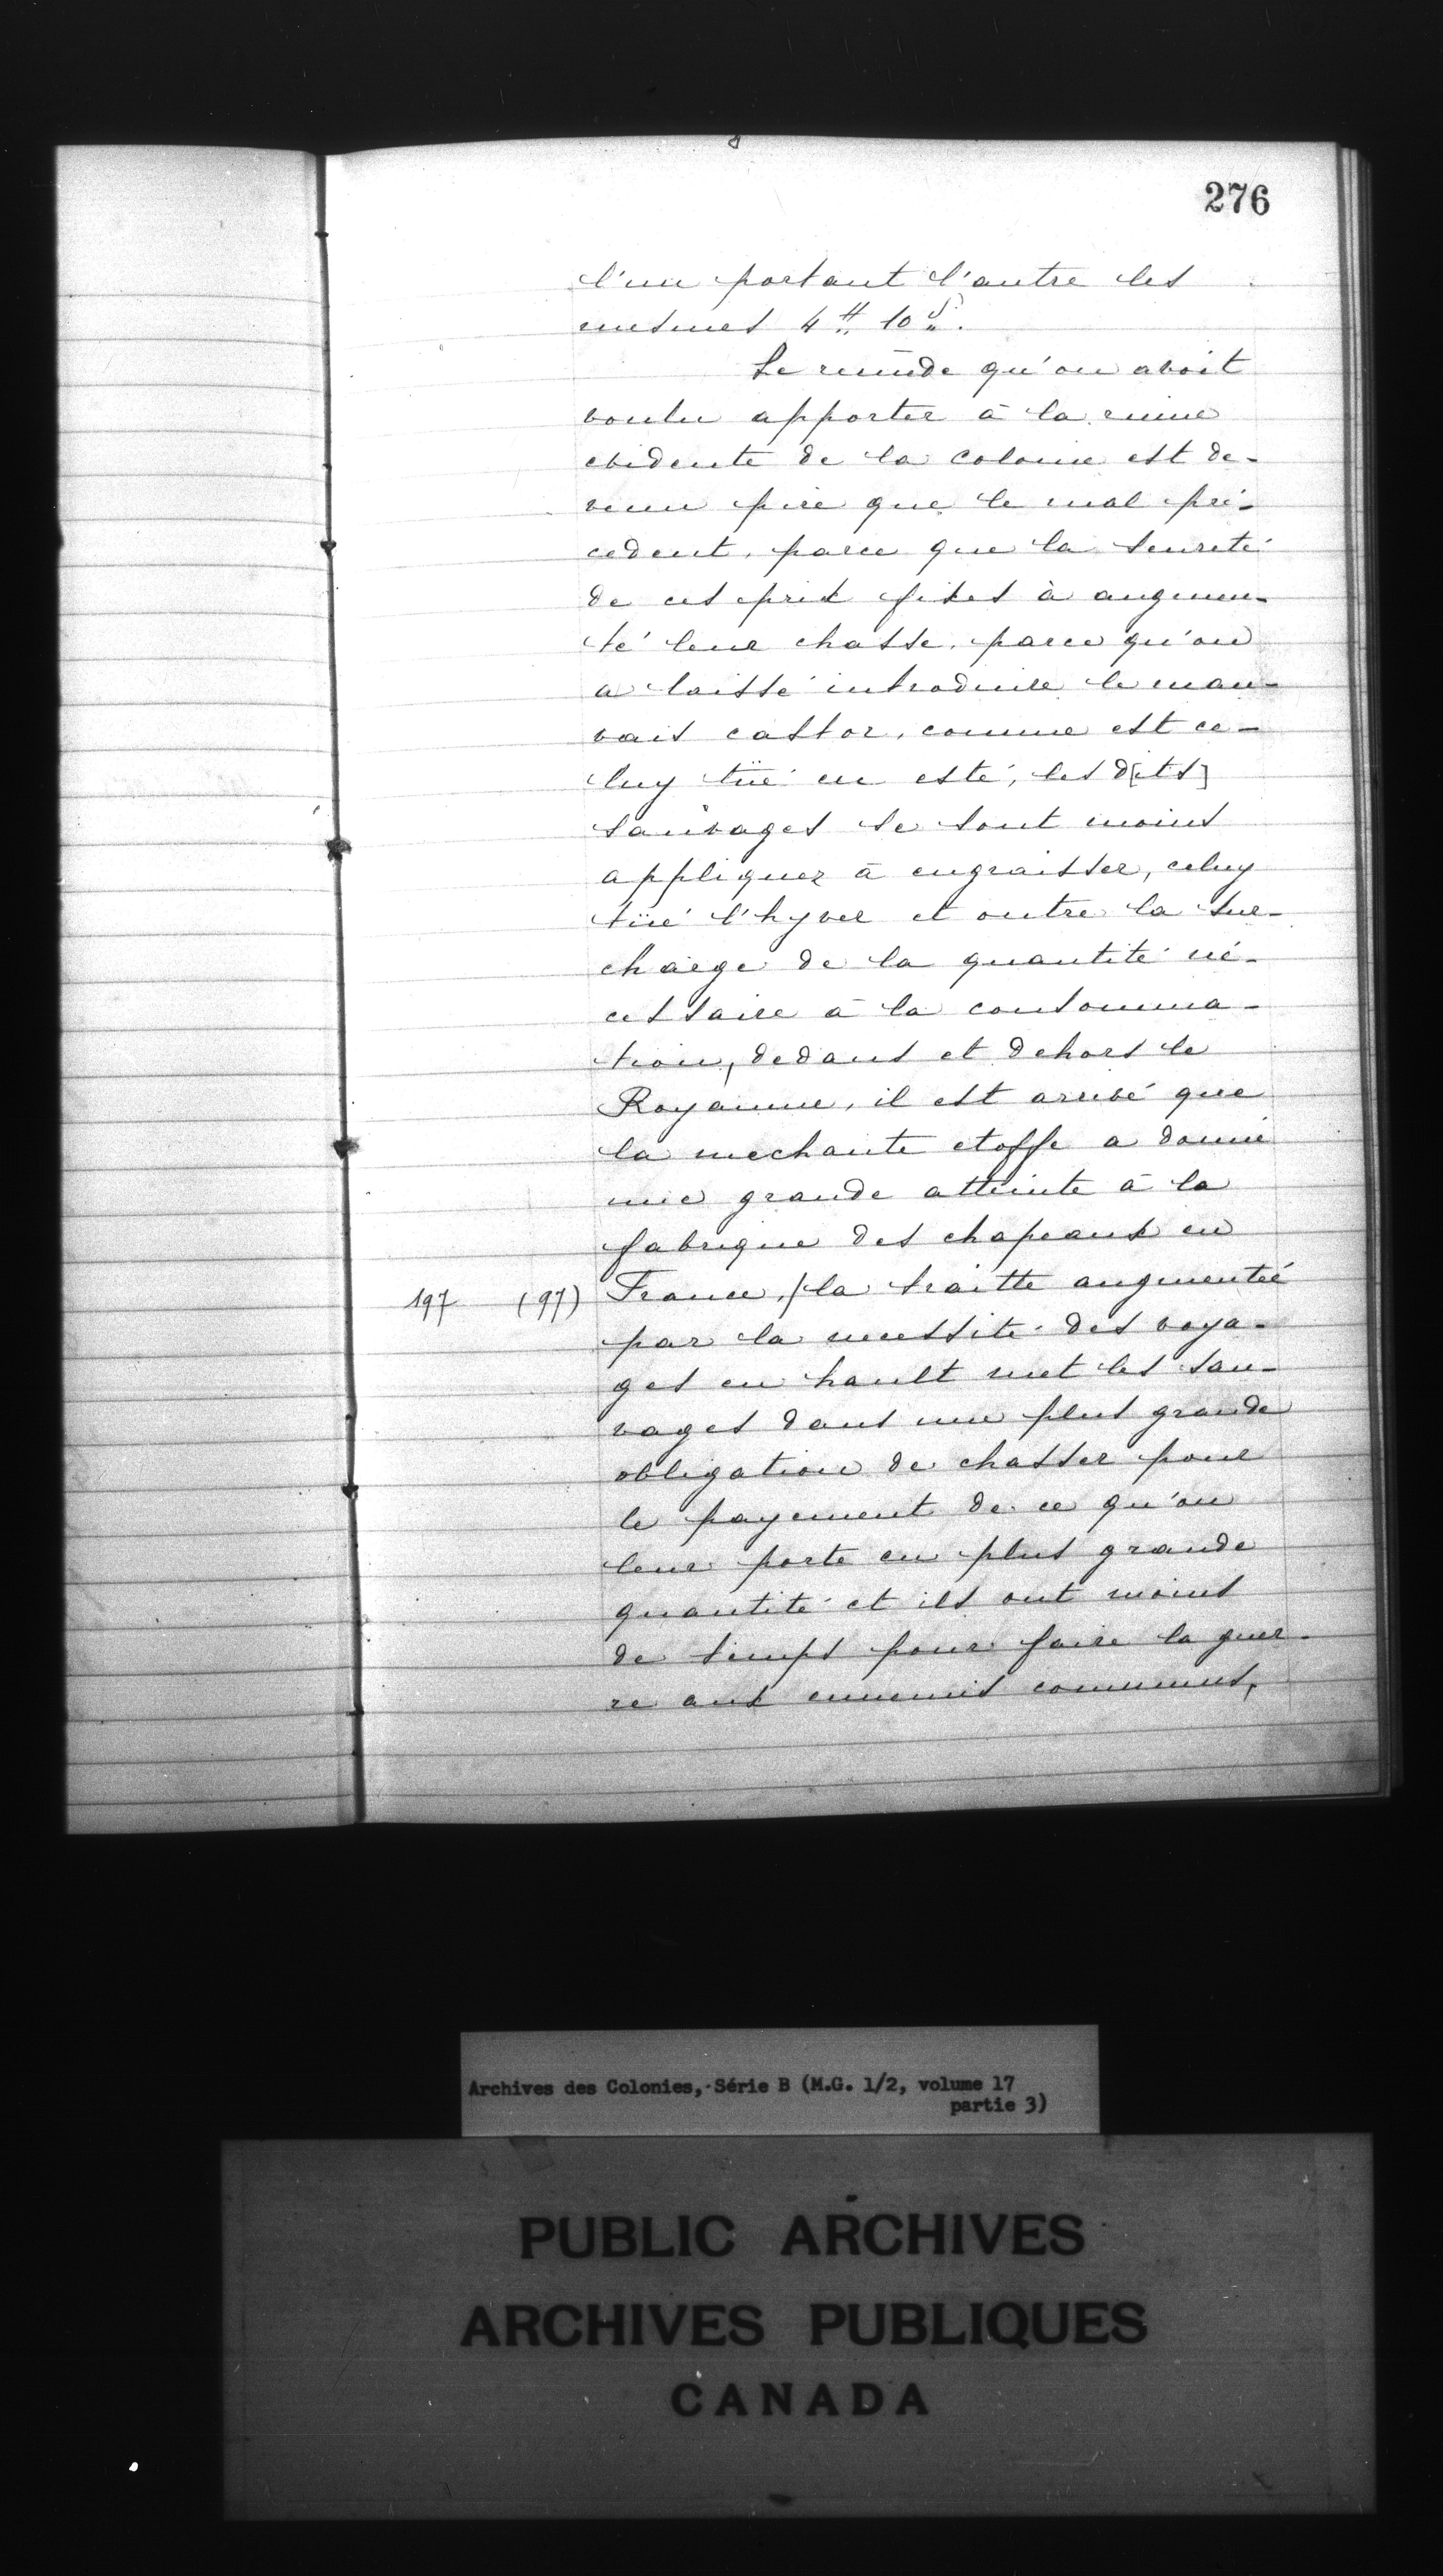 276
l'un portant l'autre les
mesmes 4 ₶ 10 s.
Le remède qu'on avoit
voulu apporter à la ruine
evidente de la colonie est de-
venu pire que le mal pré-
cedent, parce que la seureté
de ces prix fixes à augmen-
té leur chasse, parce qu'on
a laissé introduire le mau-
vais castor, comme est ce-
luy tüé en esté, les d[its]
sauvages se sont moins
appliquez à engraisser, celuy
tüé l'hyver et outre la sur-
charge de la quantité né-
cessaire à la consomma-
tion, dedans et dehors le
Royaume, il est arrivé que
la mechante etoffe a donné
une grande atteinte à la
fabrique des chapeaux en
197 (97) France, / la traitte augmentée
par la necessité des voya-
ges en hault met les sau-
vages dans une plus grande
obligation de chasser pour
le payement de ce qu'on
leur porte en plus grande
quantité et ils ont moins
de temps pour faire la guer-
re aux ennemis communs,
Archives des Colonies, Série B (M.G. 1/2, volume 17
partie 3)
PUBLIC ARCHIVES
ARCHIVES PUBLIQUES
CANADA